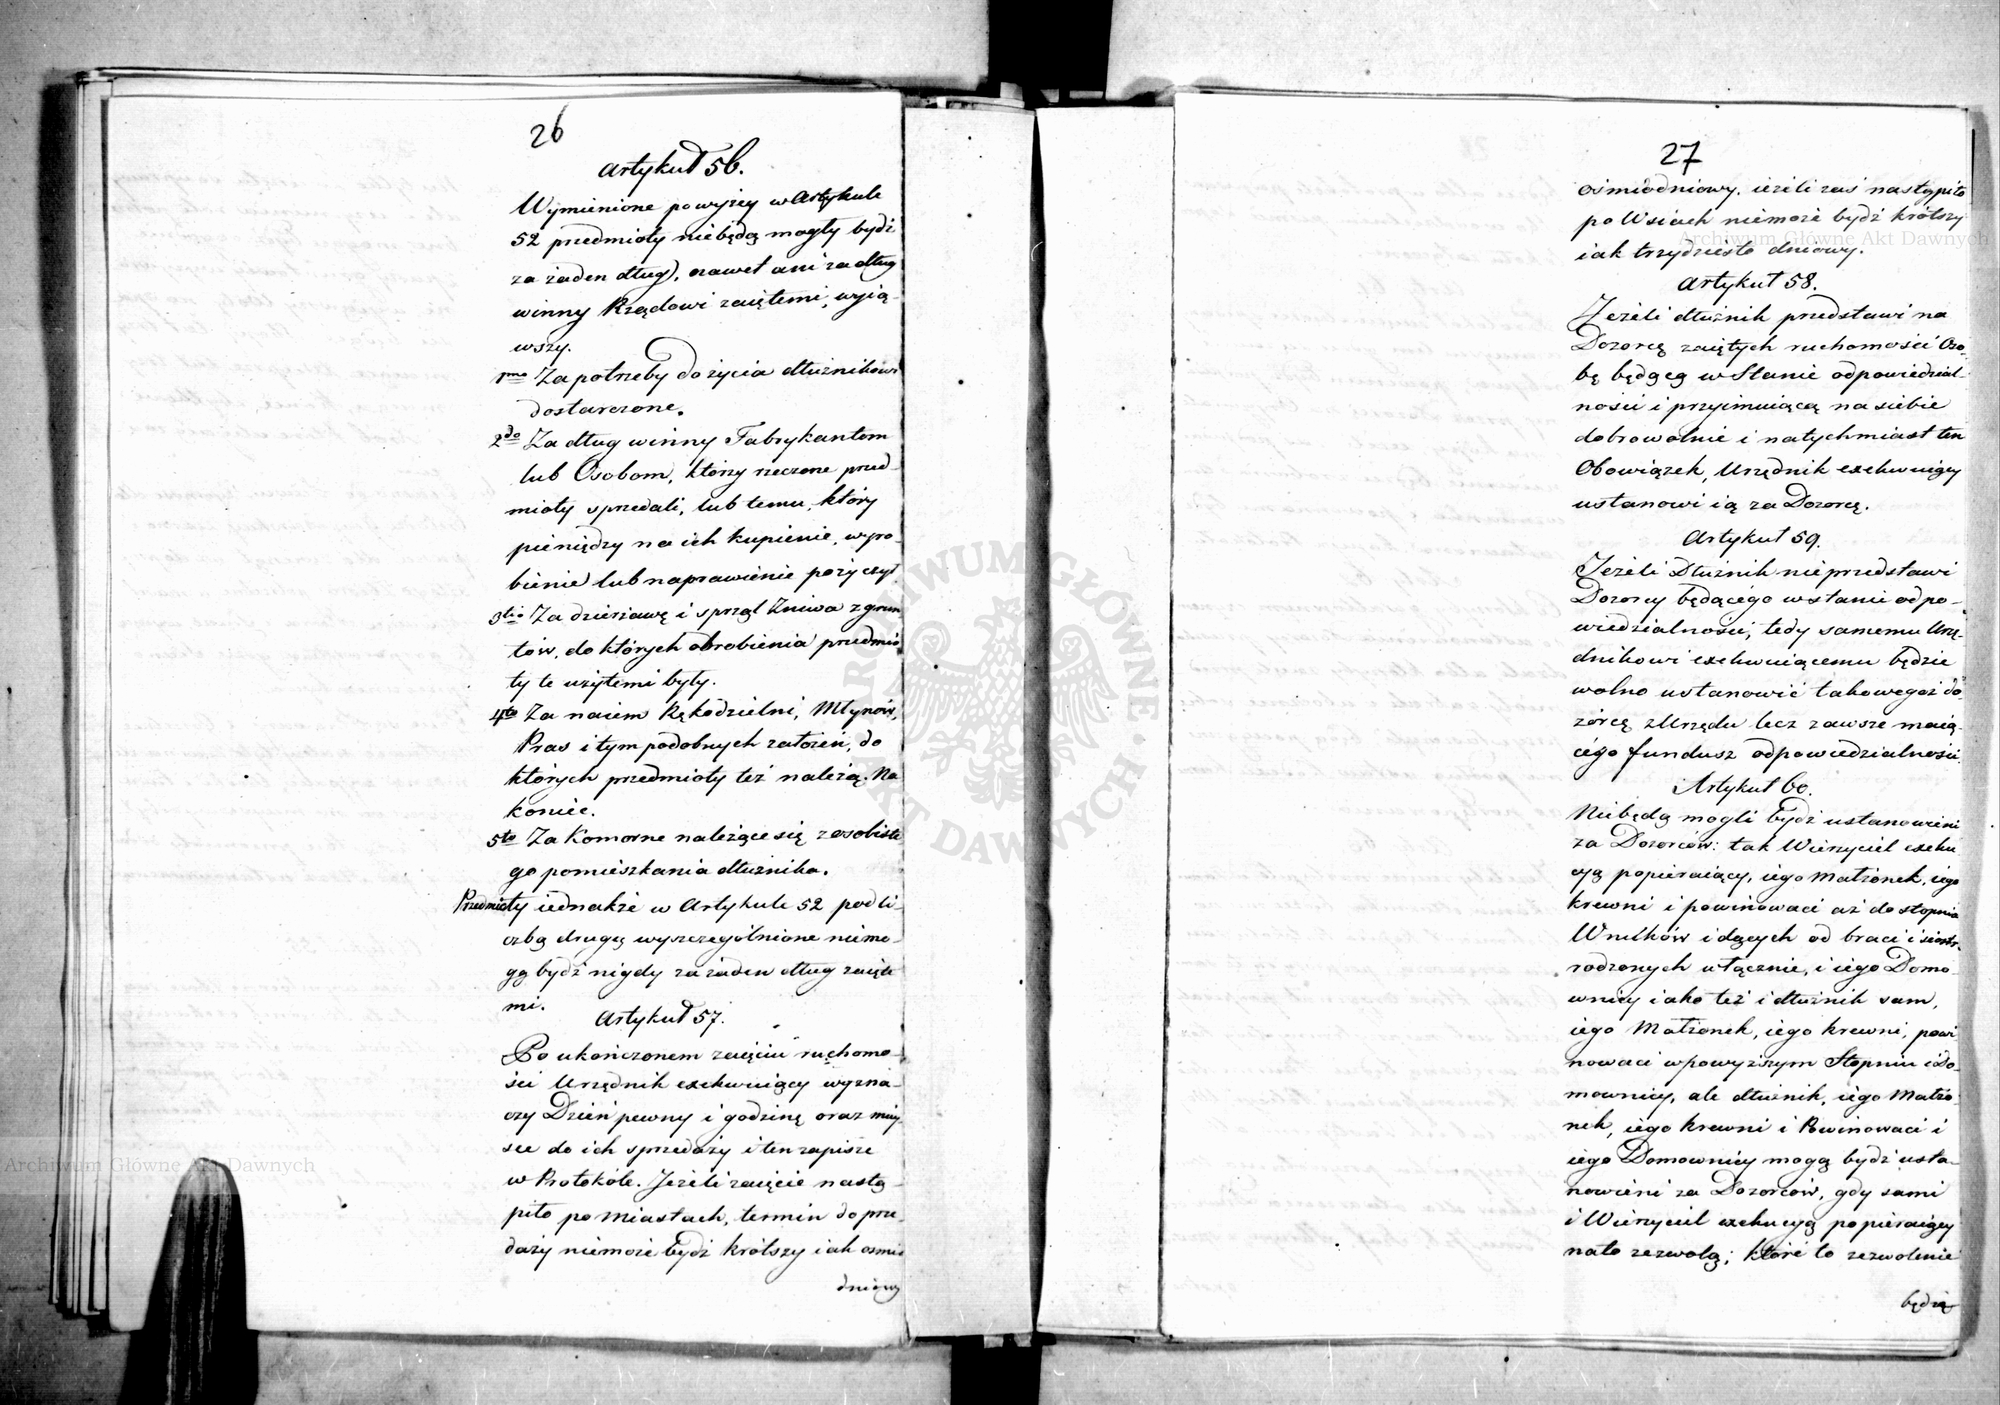 26
Artykuł 56.
Wymienione powyżey w Artykule
52 przedmioty niebędą mogły bydź
za żaden dług, nawet ani za dług
winny Rządowi zaiętemi, wyią-
wszy.
1mo Za potrzeby do życia dłużnikowi
dostarczone.
2do Za dług winny Fabrykantom
lub Osobom, którzy rzeczone przed-
mioty sprzedali, lub temu, który
pieniędzy na ich kupienie, wyro-
bienie lub naprawienie pożyczył
3tio Za dzierżawę i sprzęt żniwa z grun
tów, do których obrobienia przedmio
ty te użytemi były.
4to Za naiem Rękodzielni, Młynów,
Pras i tym podobnych założeń, do
których przedmioty też należą. Na
koniec.
5to Za Komorne należące się z osobiste
go pomieszkania dłużnika.
Przedmioty iednakże w Artykule 52 pod li-
czbą drugą wyszczególnione niemo-
gą bydź nigdy za żaden dług zaięte
mi.
Artykuł 57.
Po ukończonem zaięciu ruchomo-
ści Urzędnik exekwuiący wyzna-
czy Dzień pewny i godzinę oraz miey
sce do ich sprzedaży i ten zapisze
w Protokóle. Jeżeli zaięcie nastą-
piło po Miastach, termin do prze-
daży niemoże bydź krótszy iak osmio
dniowy
27
ośmiodniowy. ieżeli zaś nastąpiło
po Wsiach niemoże bydź krótszy
iak trzydziesto dniowy.
Artykuł 58.
Jeżeli dłużnik przedstawi na
Dozorcę zaiętych ruchomości Oso-
bę będącą w Stanie odpowiedzial-
ności i przyimuiącą na siebie
dobrowolnie i natychmiast ten
Obowiązek, Urzędnik exekwuiący
ustanowi ią za Dozorcę.
Artykuł 59.
Jeżeli Dłużnik nie przedstawi
Dozorcy będącego w stanie odpo-
wiedzialności, tedy samemu Urzę-
dnikowi exekwuiącemu będzie
wolno ustanowić takowegoż do
zórcę z Urzędu lecz zawsze maią-
cego fundusz odpowiedzialności.
Artykuł 60.
Niebędą mogli bydź ustanowieni
za Dozorców: tak Wierzyciel exeku
cyą popieraiący, iego Małżonek, iego
krewni i powinowaci aż do stopnia
Wnuków idących od braci i siostr
rodzonych włącznie, i iego Domo-
wnicy iako też i dłużnik sam,
iego Małżonek, iego krewni, powi
nowaci w powyższym Stopniu i do-
mownicy, ale dłużnik, iego Małżo-
nek, iego krewni i Powinowaci i
iego Domownicy mogą bydź usta-
nowieni za Dozorców, gdy sami
i Wierzyciel exekucyą popieraiący
na to zezwolą; które to zezwolenie
będzie
Archiwum Główne Akt Dawnych
Archiwum Główne Akt Dawnych
ARCHIWUM GŁÓWNE AKT DAWNYCH